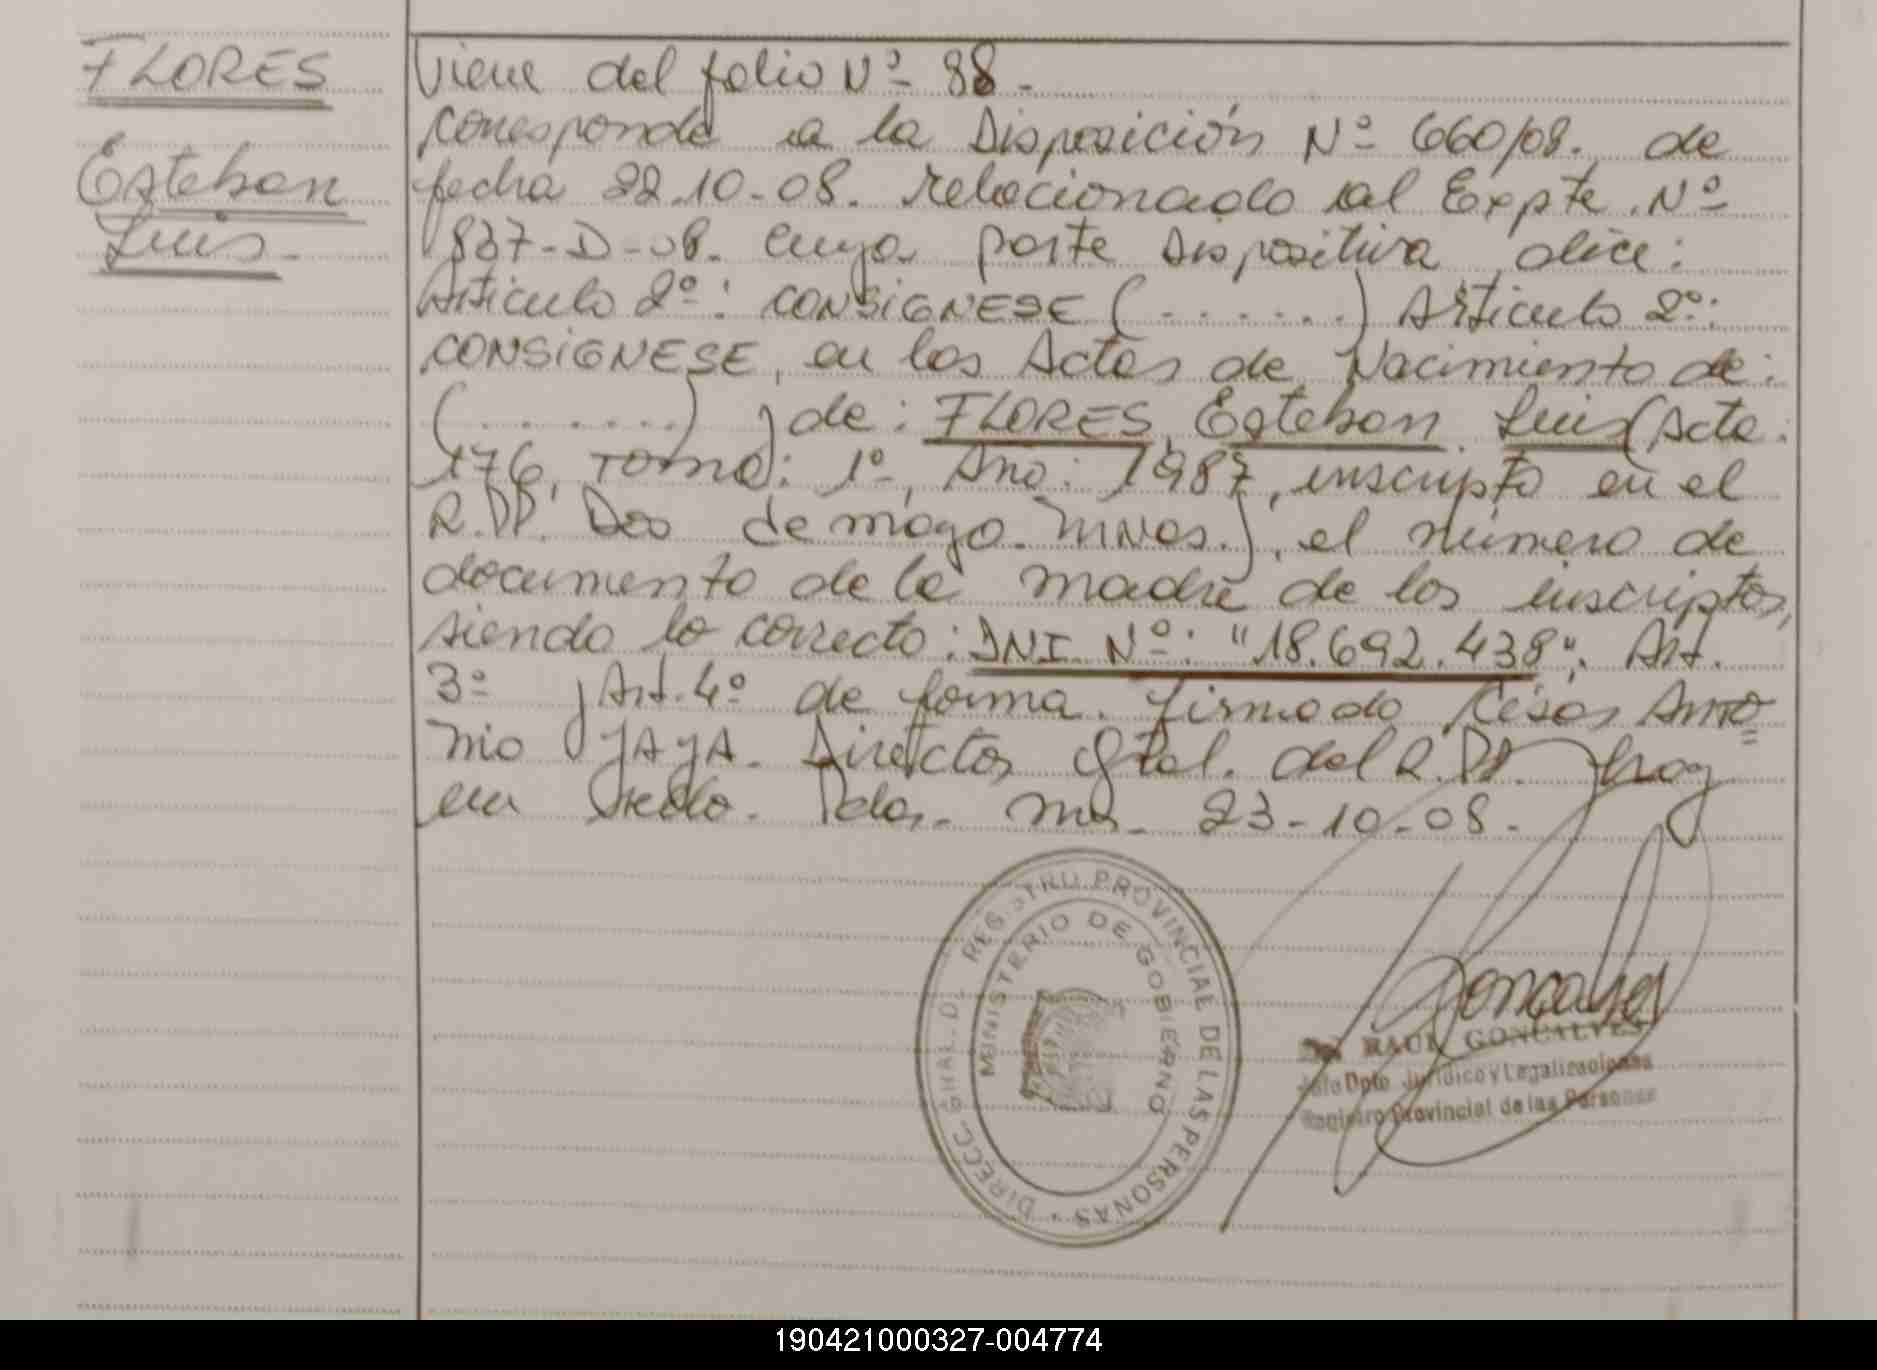 FLORES
Esteban
Luis.-
Viene del folio Nº 88.-
Corresponde a la Disposición Nº 660/08. de
fecha 22.10-08. relacionado al Expte. Nº
837-D-08. cuya parte dispositiva dice:
Artículo 2º: CONSIGNESE (......) Artículo 2º:
CONSIGNESE, en las Actas de Nacimiento de:
(......) y de: FLORES, Esteban Luis (Acta:
176, Tomo: 1º, Año: 1987, inscripto en el
R.PP. Dos de mayo. Mnes.), el número de
documento de la madre de los inscriptos,
siendo lo correcto: DNI Nº: "18.692.438"; Art.
3º y Art. 4º de forma. Firmado César Anto=
nio YAYA. Director Gral. del R.PP. Hay
un sello. Pdas. Mns. 23-10-08.-
DIRECC. GRAL. D. REGISTRO PROVINCIAL DE LAS PERSONAS
MINISTERIO DE GOBIERNO
Goncalves
RAUL GONCALVES
Jefe Dpto Jurídico y Legalizaciones
Registro Provincial de las Personas
190421000327-004774